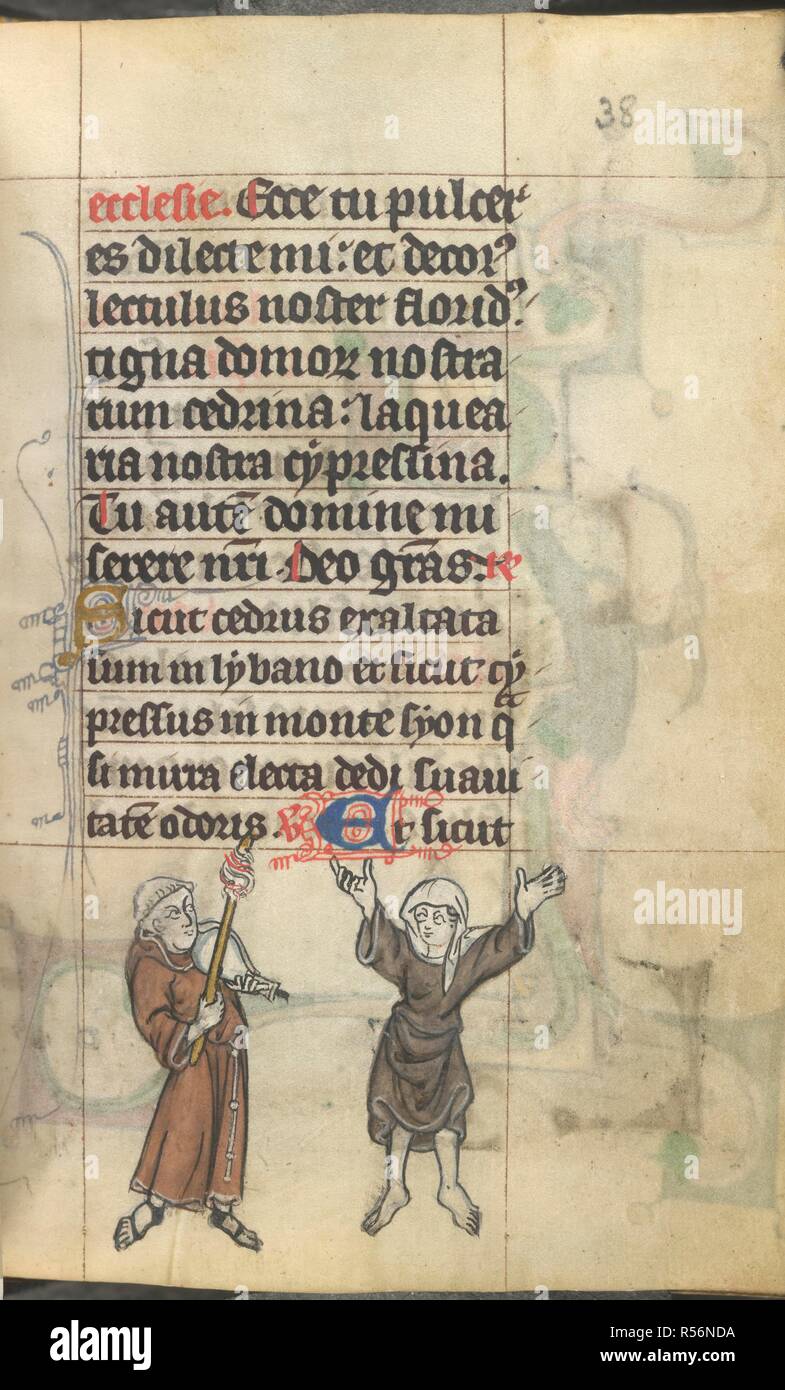 38
ecclesie. Ecce tu pulcer
es dilecte mi: et decorꝰ
lectulus noster floridꝰ.
tigna domoꝝ nostra
rum cedrina: laquea
ria nostra cypressina.
Tu autē domine mi
serere nr̄i. Deo gr̄as. re
Sicut cedrus exaltata
sum in lybano et sicut cy
pressus in monte syon q̄
si mirra electa dedi suaui
tatē odoris. V Et sicut
alamy
alamy
Image ID: R56NDA
www.alamy.com